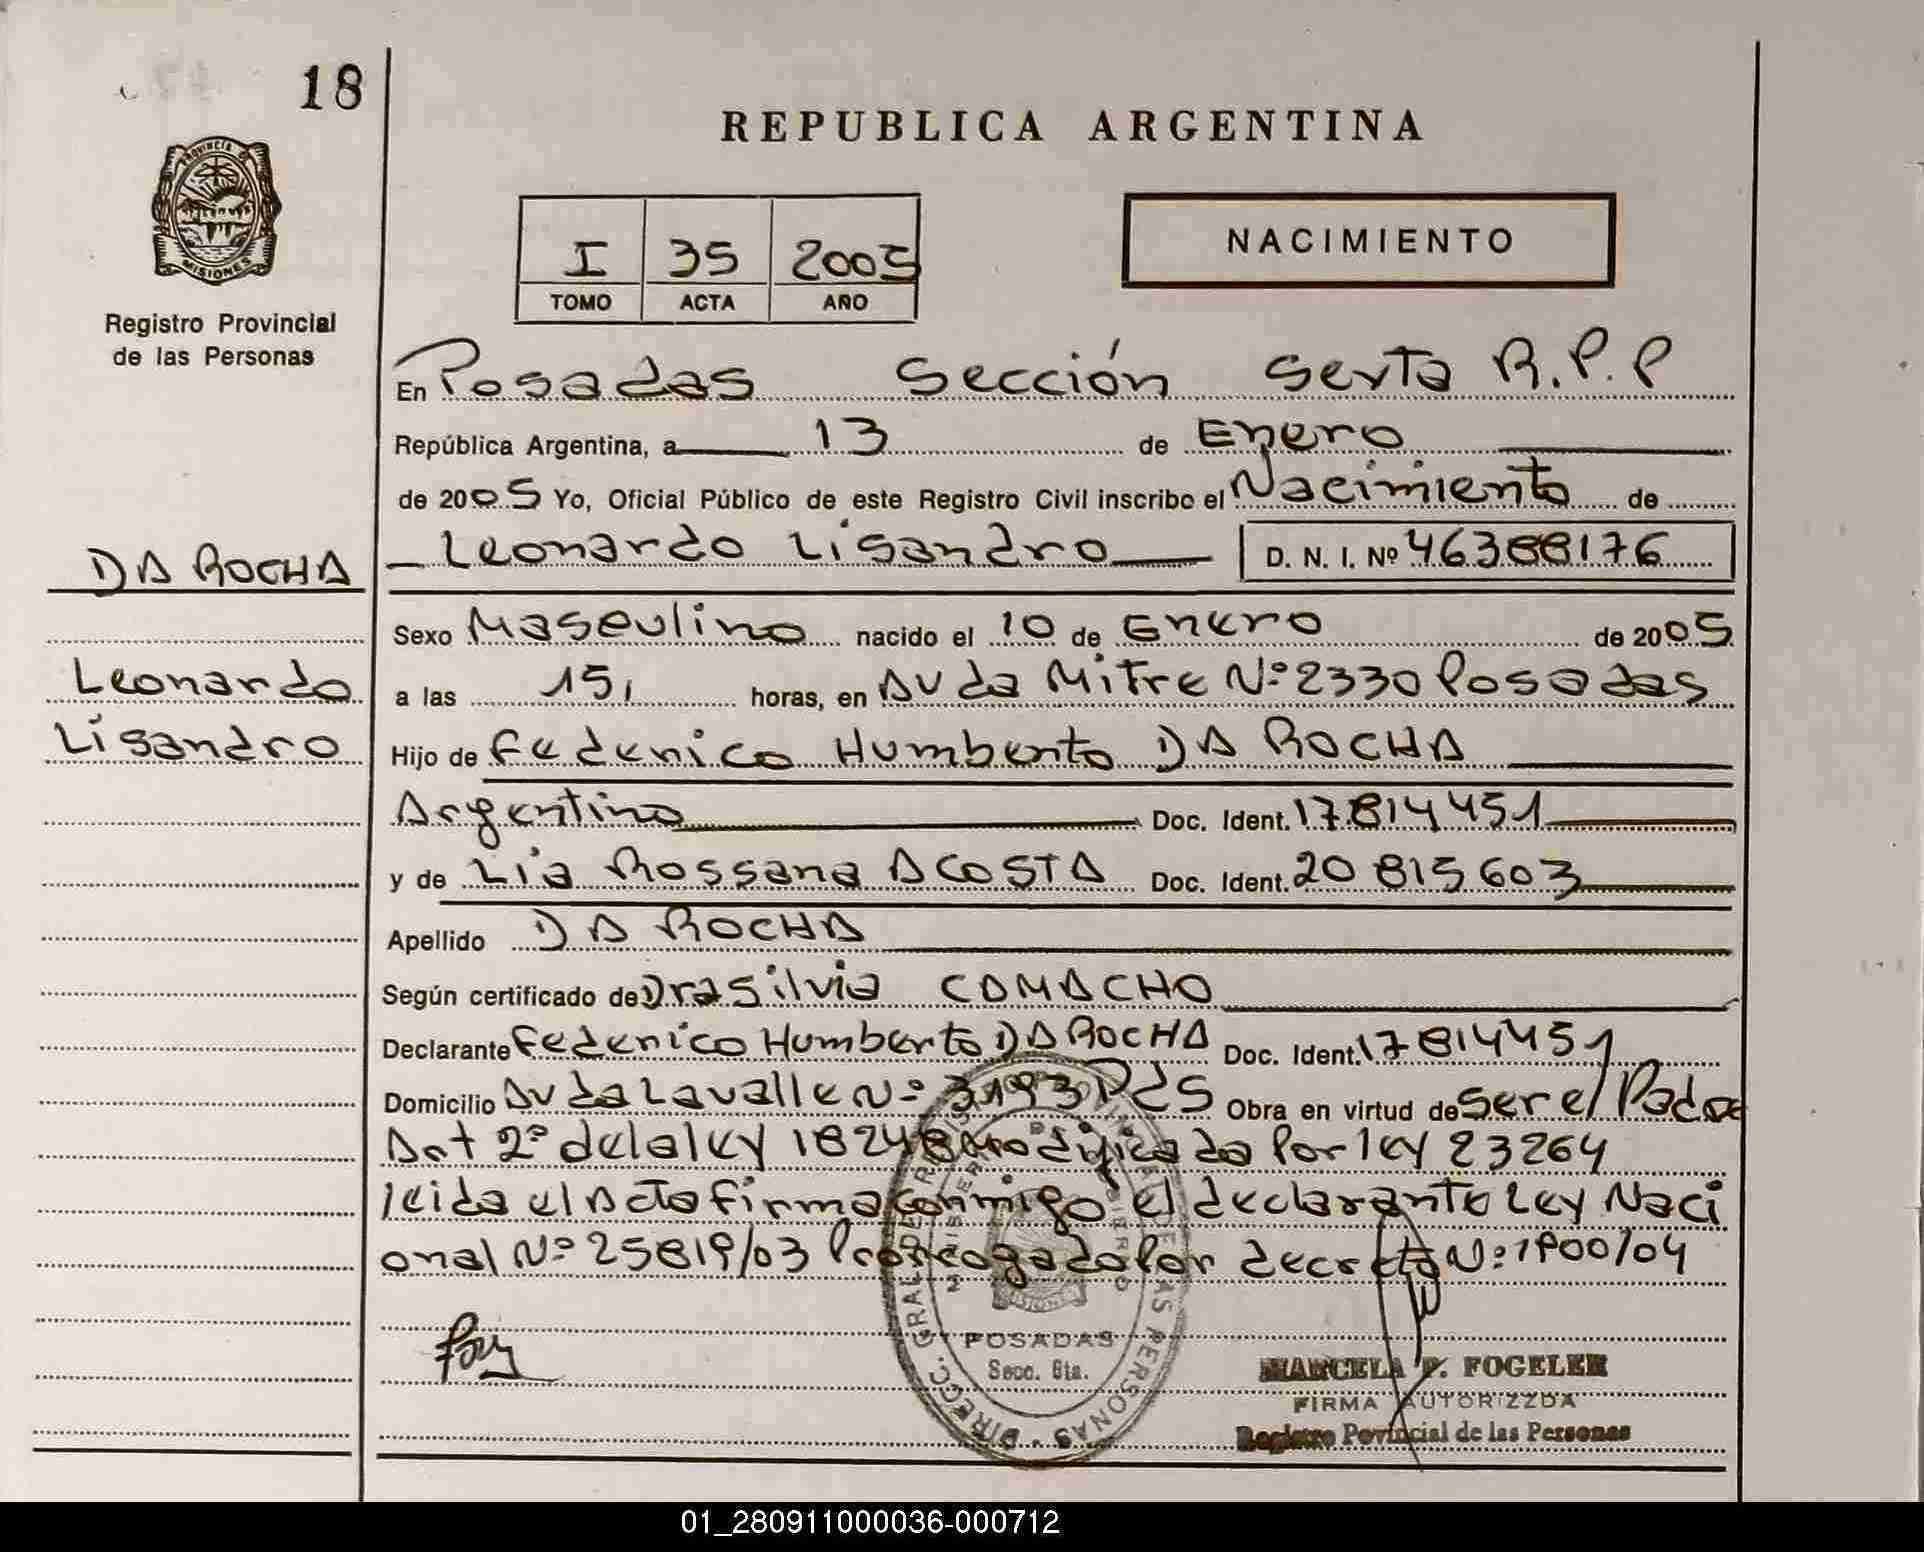 18
REPUBLICA ARGENTINA
PROVINCIA DE
MISIONES
Registro Provincial
de las Personas
I 35 2005
TOMO ACTA AÑO
NACIMIENTO
En Posadas Sección Sexta R.P.P
República Argentina, a 13 de Enero
de 2005 Yo, Oficial Público de este Registro Civil inscribo el Nacimiento de
DA ROCHA
Leonardo Lisandro D. N. I. Nº 46388176
Sexo Masculino nacido el 10 de Enero de 2005
Leonardo
a las 15, horas, en Avda Mitre Nº 2330 Posadas
Lisandro
Hijo de Federico Humberto DA ROCHA
Argentino Doc. Ident. 17814451
y de Lia Rossana ACOSTA Doc. Ident. 20815603
Apellido DA ROCHA
Según certificado de Dra Silvia CAMACHO
Declarante Federico Humberto DA ROCHA Doc. Ident. 17814451
Domicilio Avda Lavalle Nº 3193 Pds Obra en virtud de ser el Padre
Art 2º de la ley 18248 Modificado Por ley 23264
leida el Acta firma conmigo el declarante Ley Naci
onal Nº 25819/03 Prorrogado Por decreto Nº 1900/04
POSADAS
Secc. 6ta.
MARCELA P. FOGELER
FIRMA AUTORIZZDA
Registro Povincial de las Personas
01_280911000036-000712